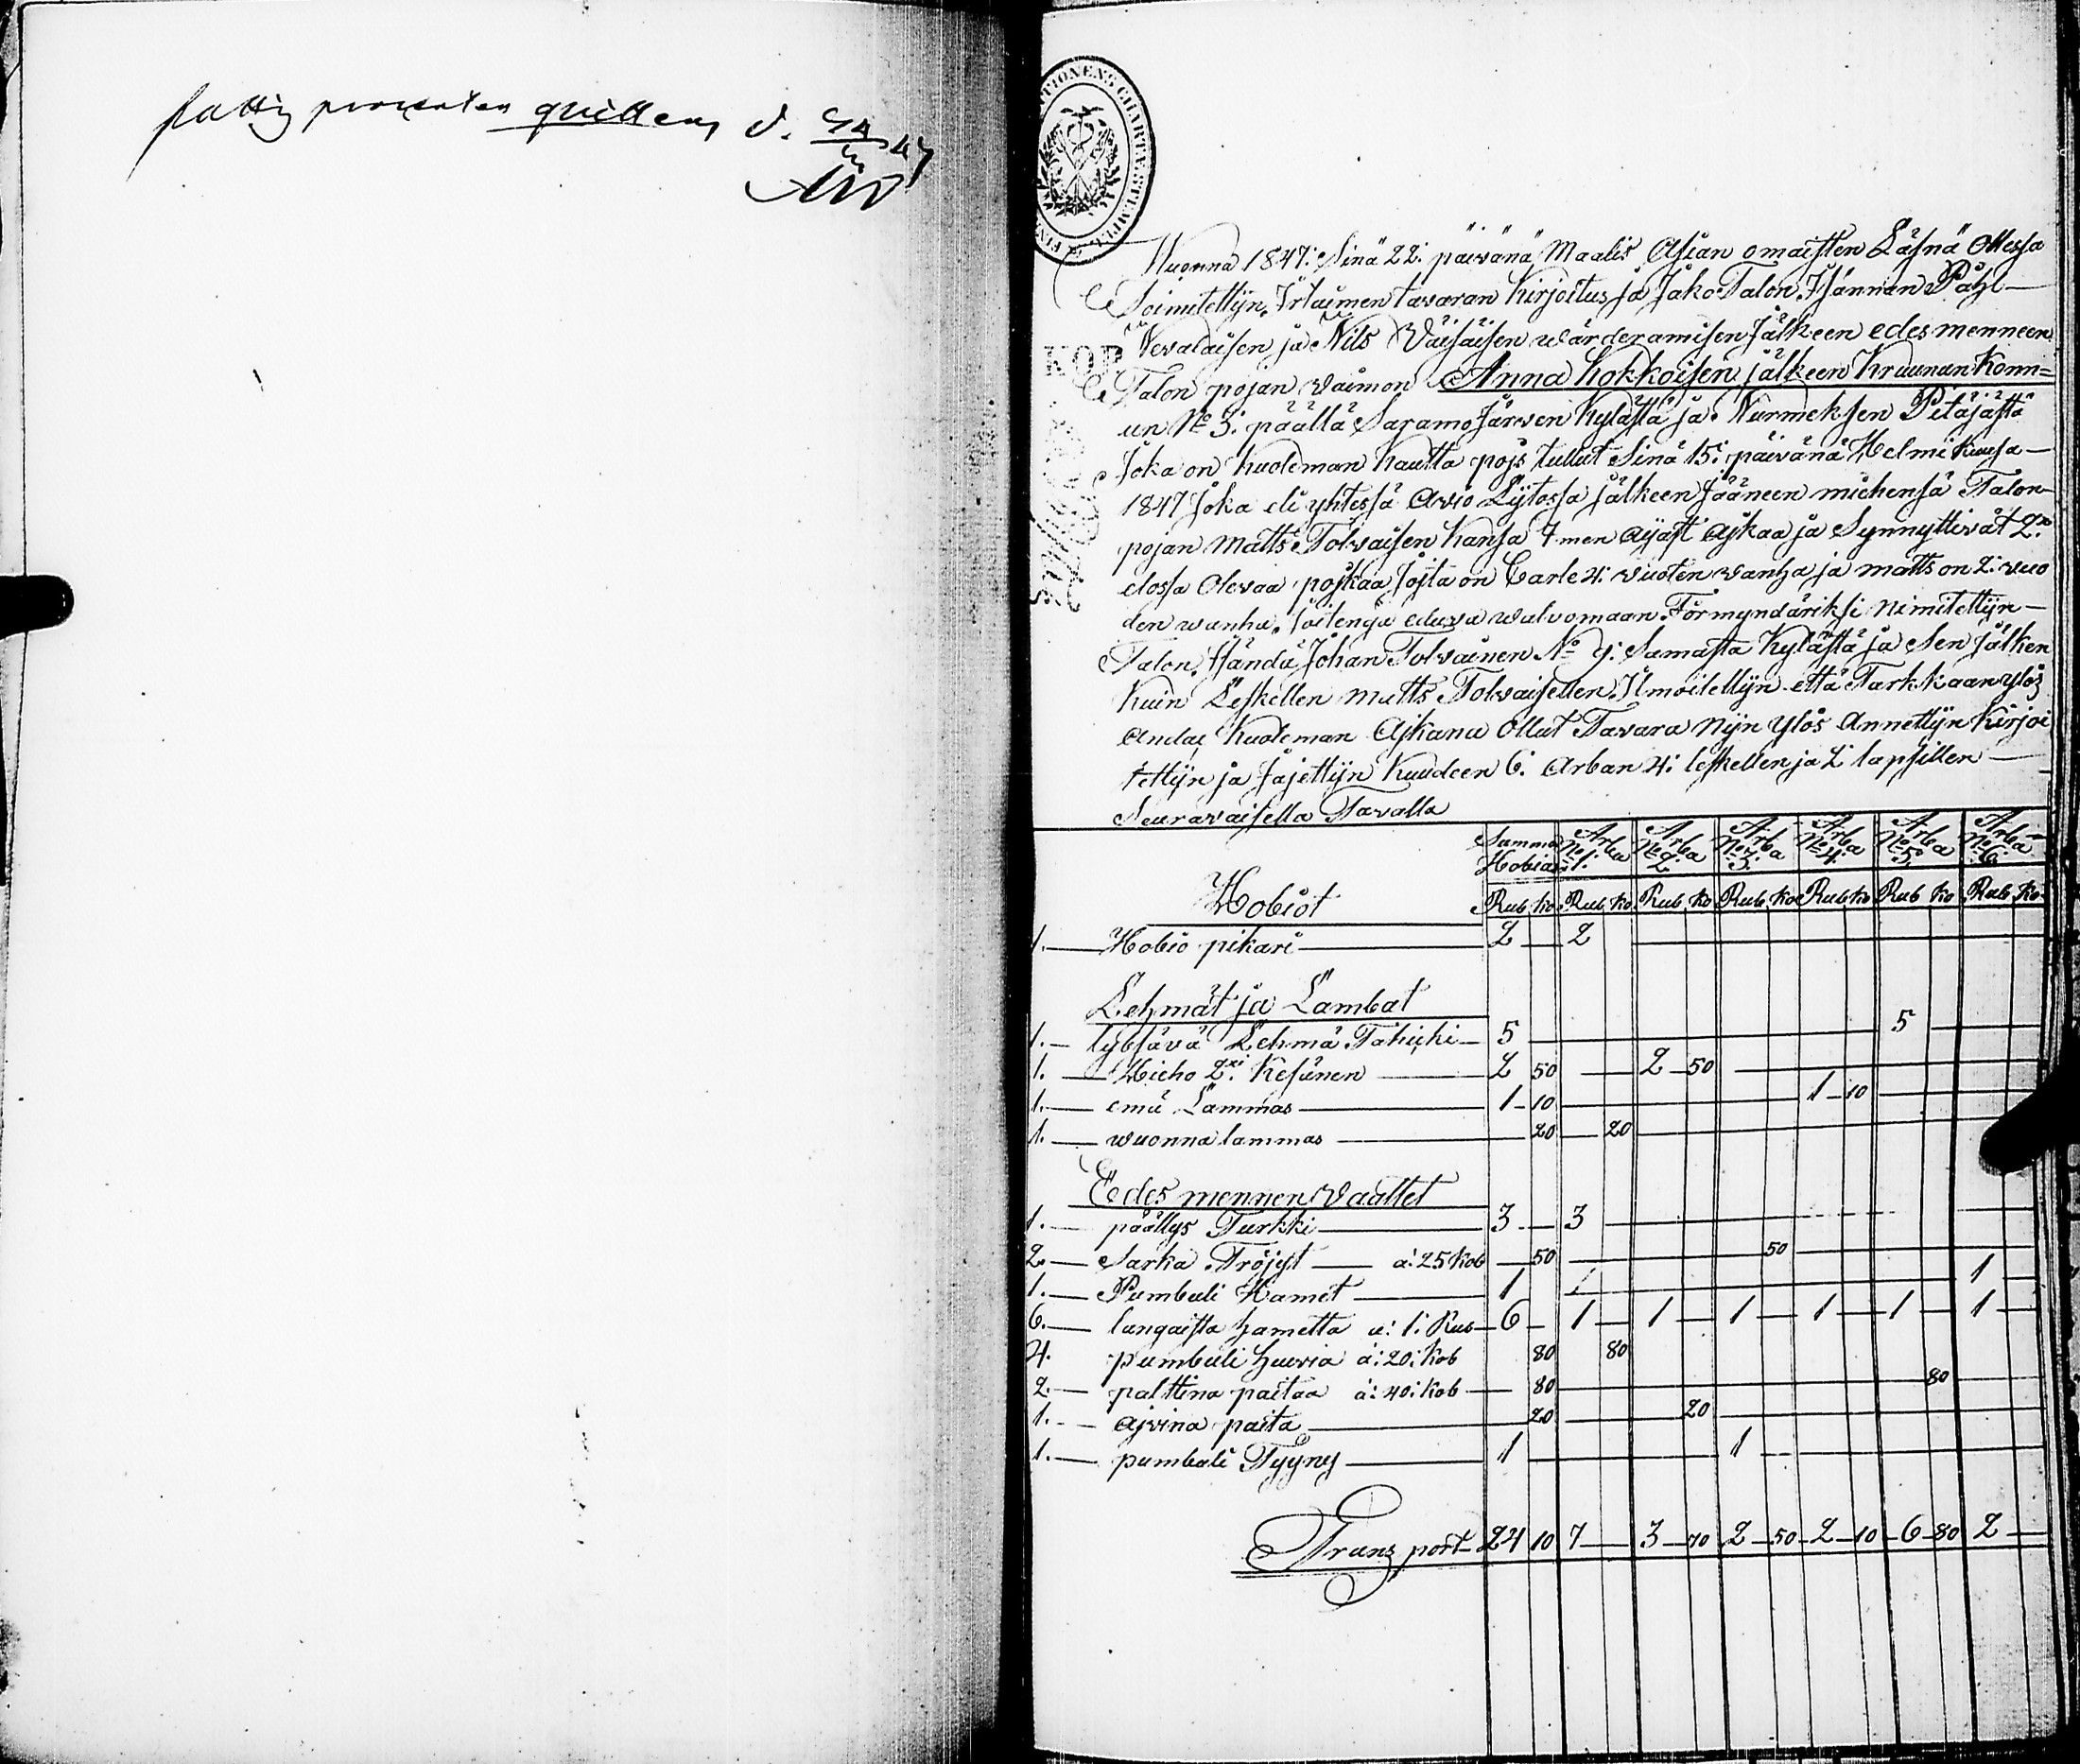 fattig procenten quitteras d.
Wuonna 1847: Sinä 22: päivänä Maalis Asian omaisten Läsnä Ollessa
Toimitettijn Irtaimen tavaran Kirjoitus ja Jako Talon Isännän Påhl
Nevalaisen ja Nils Väisäisen wärderamisen Jälkeen edes menneen
Talon pojan vaimon Anna Kokkoisen jälkeen Kruunun Konn=
un No 3: päällä Saramo Järven Kylästä ja Nurmeksen Pitäjästä
Joka on Kuoleman Kautta pojs tullut Sinä 15: päivänä Helmi Kuusa
1847 Joka eli yhtessä Avio Lijtossa jälkeen Jääneen miehensä Talon
pojan Matts Tolvaisen Kansa 7 men ajast ajkaa ja Synnyttivät 2:
elossa Olevaa pojkaa Joista on Carle 4: vuoten vanha ja matts on 2: vuo
den wanha. Joitenga eduva walvomaan Förmyndäriksi nimitettijn
Talon Isändä Johan Tolvainen No 9: Samasta Kylästä ja Sen Jälken
Kuin Leskellen Matts Tolvaisellen Ilmoitettijn että Tarkkaan ylös
Andaa Kuoleman Ajkana Ollut Tavara Nijn Ylös Annettijn Kirjoi
tettijn ja Jajettijn Kuudeen 6: Arban 4: leskellen ja 2: lapsillen
Seuravaisella Tavalla
Hobiot Summa Hobias Arba No 1: Arba No 2: Arba No 3: Arba No 4: Arba No 5: Arba No 6:
Rub Ko Rub Ko Rub Ko Rub Ko Rub Ko Rub Ko Rub Ko
1. Hobio pikari 2 2
Lehmät ja Lambat
1. lybsävä Lehmä Tahicki 5 5
1. Hieho 2: Kesänen 2 50 2 50
1. emä Lammas 1 10 1 10
1. wuonna lammas 20 20
Edes mennen Vaattet
1. päällys Turkki 3 3
2. Sarka Tröjyt a: 25 Kob 50 50
1. Pumbuli Hamet 1 1
6. langaista hametta a: 1: Rub 6 1 1 1 1 1 1
4. pumbuli huvia a: 20: Kob 80 80
2. palttina paitaa a: 40: Kob 80 80
1. ajvina paita 20 20
1. pumbuli Tyyny 1 1
Transport 24 10 7 3 70 2 50 2 10 6 80 2